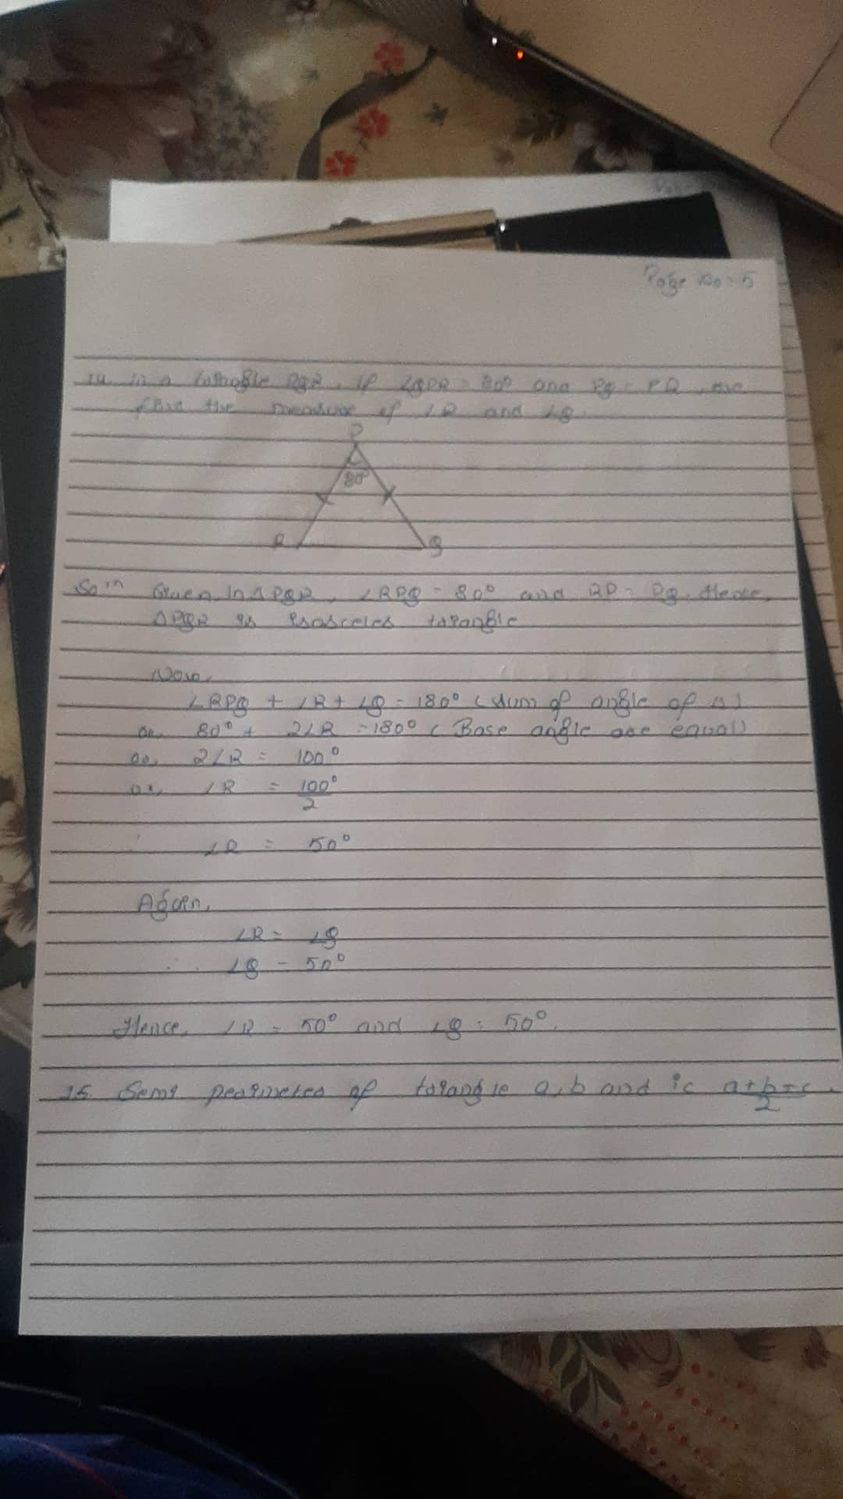 Page No: 5
14. In a triangle PQR, if ∠QPR = 80° and PQ = PR,
find the measure of ∠R and ∠Q.
P
80°
R Q
Soln Given in △PQR, ∠RPQ = 80° and RP = PQ. Hence,
△PQR is isosceles triangle
Now,
∠RPQ + ∠R + ∠Q = 180° (sum of angle of △)
or, 80° + 2∠R = 180° (Base angle are equal)
or, 2∠R = 100°
or, ∠R = 100°/2
∠R = 50°
Again,
∠R = ∠Q
∴ ∠Q = 50°
Hence, ∠R = 50° and ∠Q = 50°.
15. Semi perimeter of triangle a, b and ic a+b+c/2.